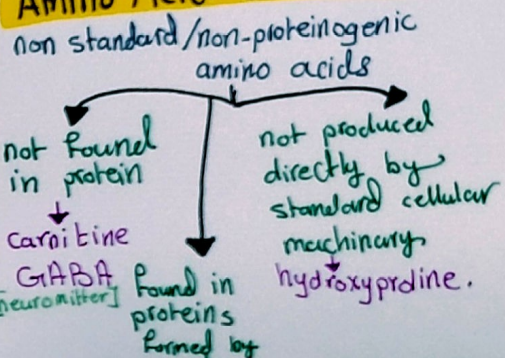 Amino Acid
non standard/non-proteinogenic
amino acids
not found
in protein
carnitine
GABA
neuromitter]
found in
proteins
formed by
not produced
directly by
standard cellular
machinary
hydroxyproline.